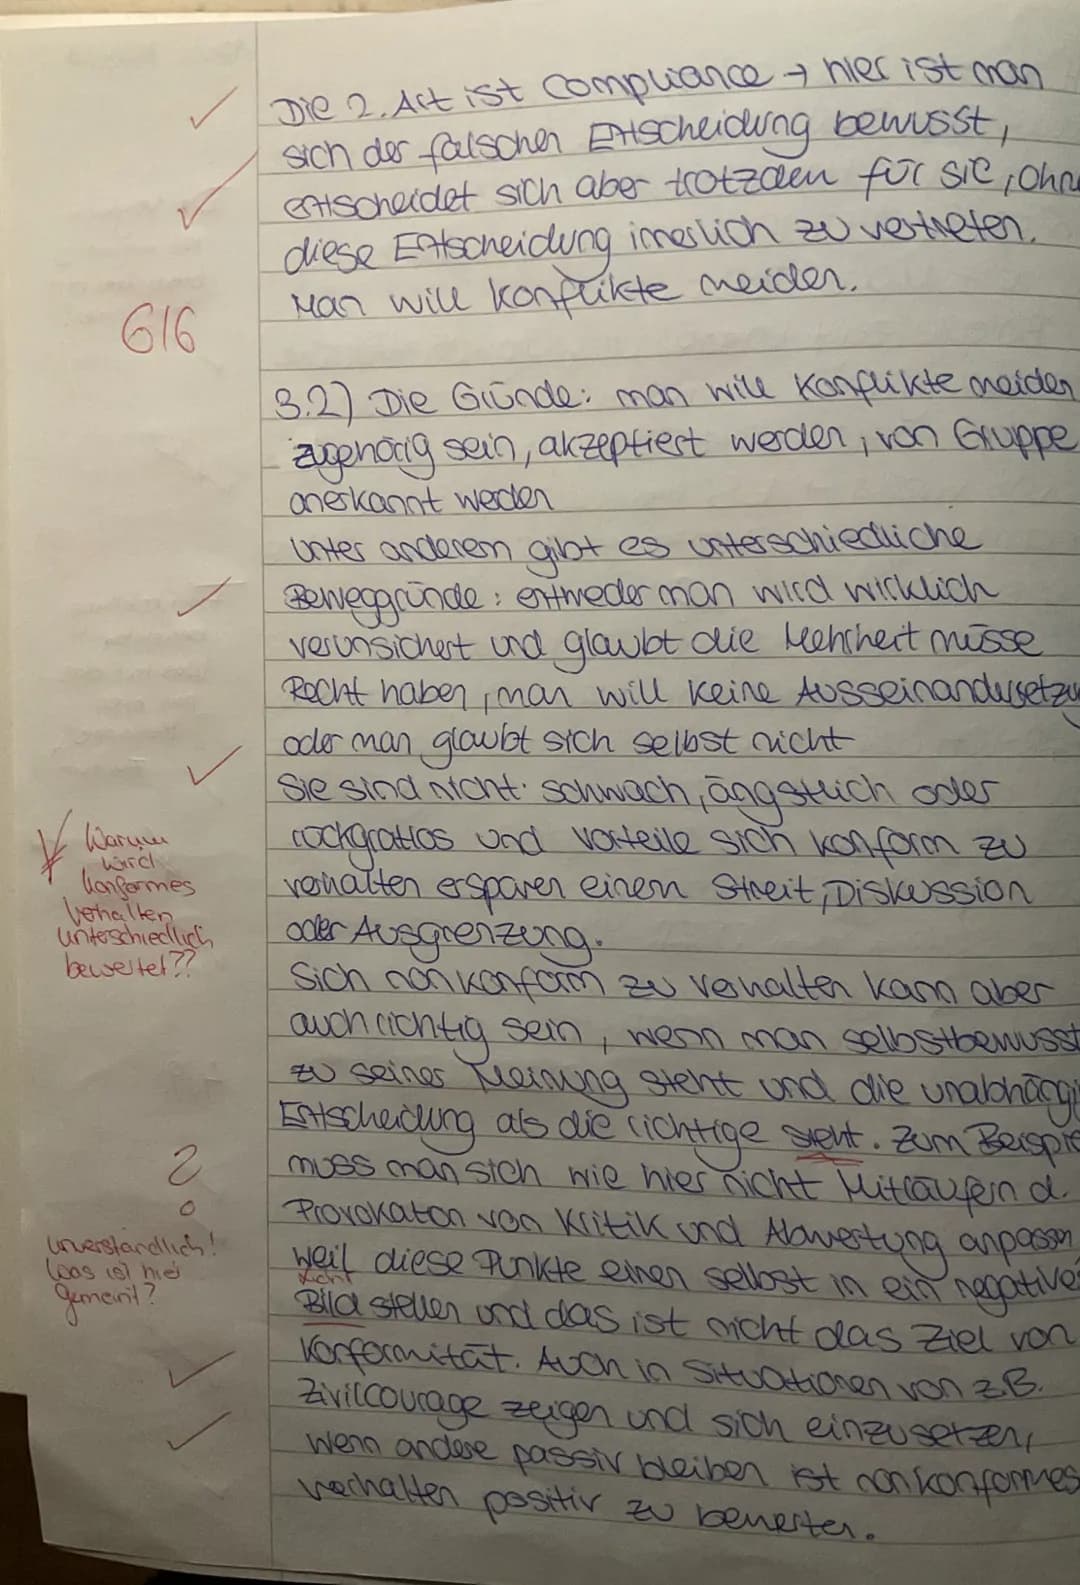 Die 2. Art ist Compliance → hier ist man
sich der falschen Entscheidung bewusst,
entscheidet sich aber trotzdem für sie, ohne
diese Entscheidung innerlich zu vertreten.
Man will Konflikte meiden.
6/6
3.2) Die Gründe: man will Konflikte meiden
zugehörig sein, akzeptiert werden, von Gruppe
anerkannt werden
Unter anderem gibt es unterschiedliche
Beweggründe: entweder man wird wirklich
verunsichert und glaubt die Mehrheit müsse
Recht haben, man will keine Ausseinandersetzu
oder man glaubt sich selbst nicht
Sie sind nicht: schwach, ängstlich oder
rückgratlos und Vorteile sich konform zu
verhalten ersparen einem Streit, Diskussion
oder Ausgrenzung.
Warum
wird
konformes
Verhalten
unterschiedlich
bewertet??
Sich nonkonform zu verhalten kann aber
auch richtig sein, wenn man selbstbewusst
zu seiner Meinung steht und die unabhängi
Entscheidung als die richtige sieht. Zum Beispie
muss man sich wie hier nicht Mitläufern d.
Provokaton von Kritik und Abwertung anpassen
weil diese Punkte einen selbst in ein negative
Licht
Bild stellen und das ist nicht das Ziel von
?
unverständlich!
Was ist hier
gemeint?
Konformität. Auch in Situationen von z.B.
Zivilcourage zeigen und sich einzusetzen,
wenn andere passiv bleiben ist nonkonformes
verhalten positiv zu bewerten.